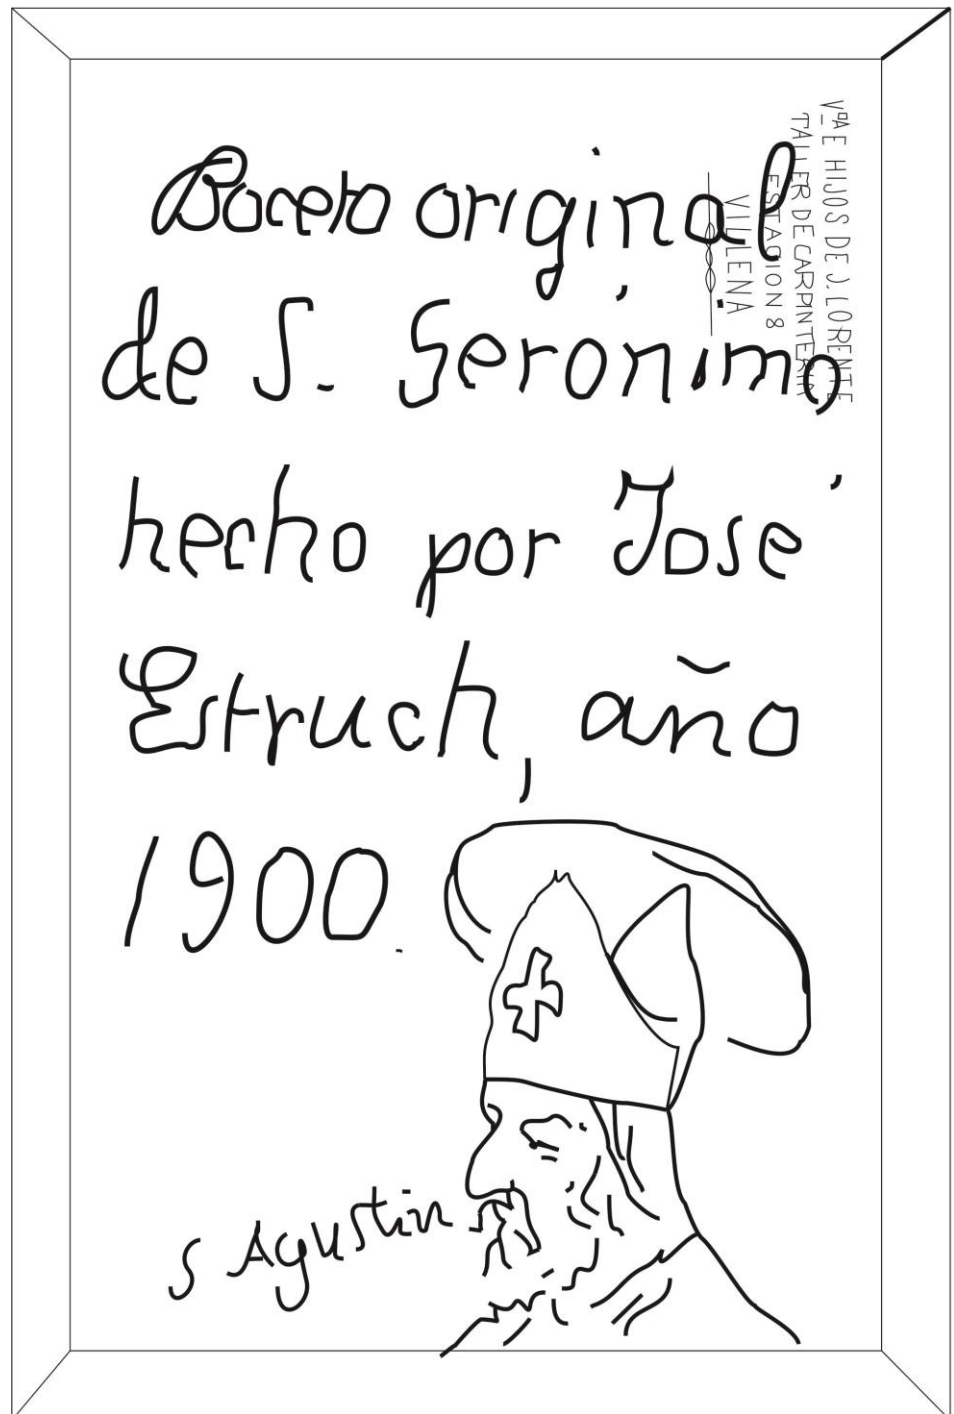 Boceto original
de S. Gerónimo,
hecho por José
Estruch, año
1900.
S Agustin
Vᵈᴬ E HIJOS DE J. LORENTE
TALLER DE CARPINTERIA
ESTACION 8
VILLENA